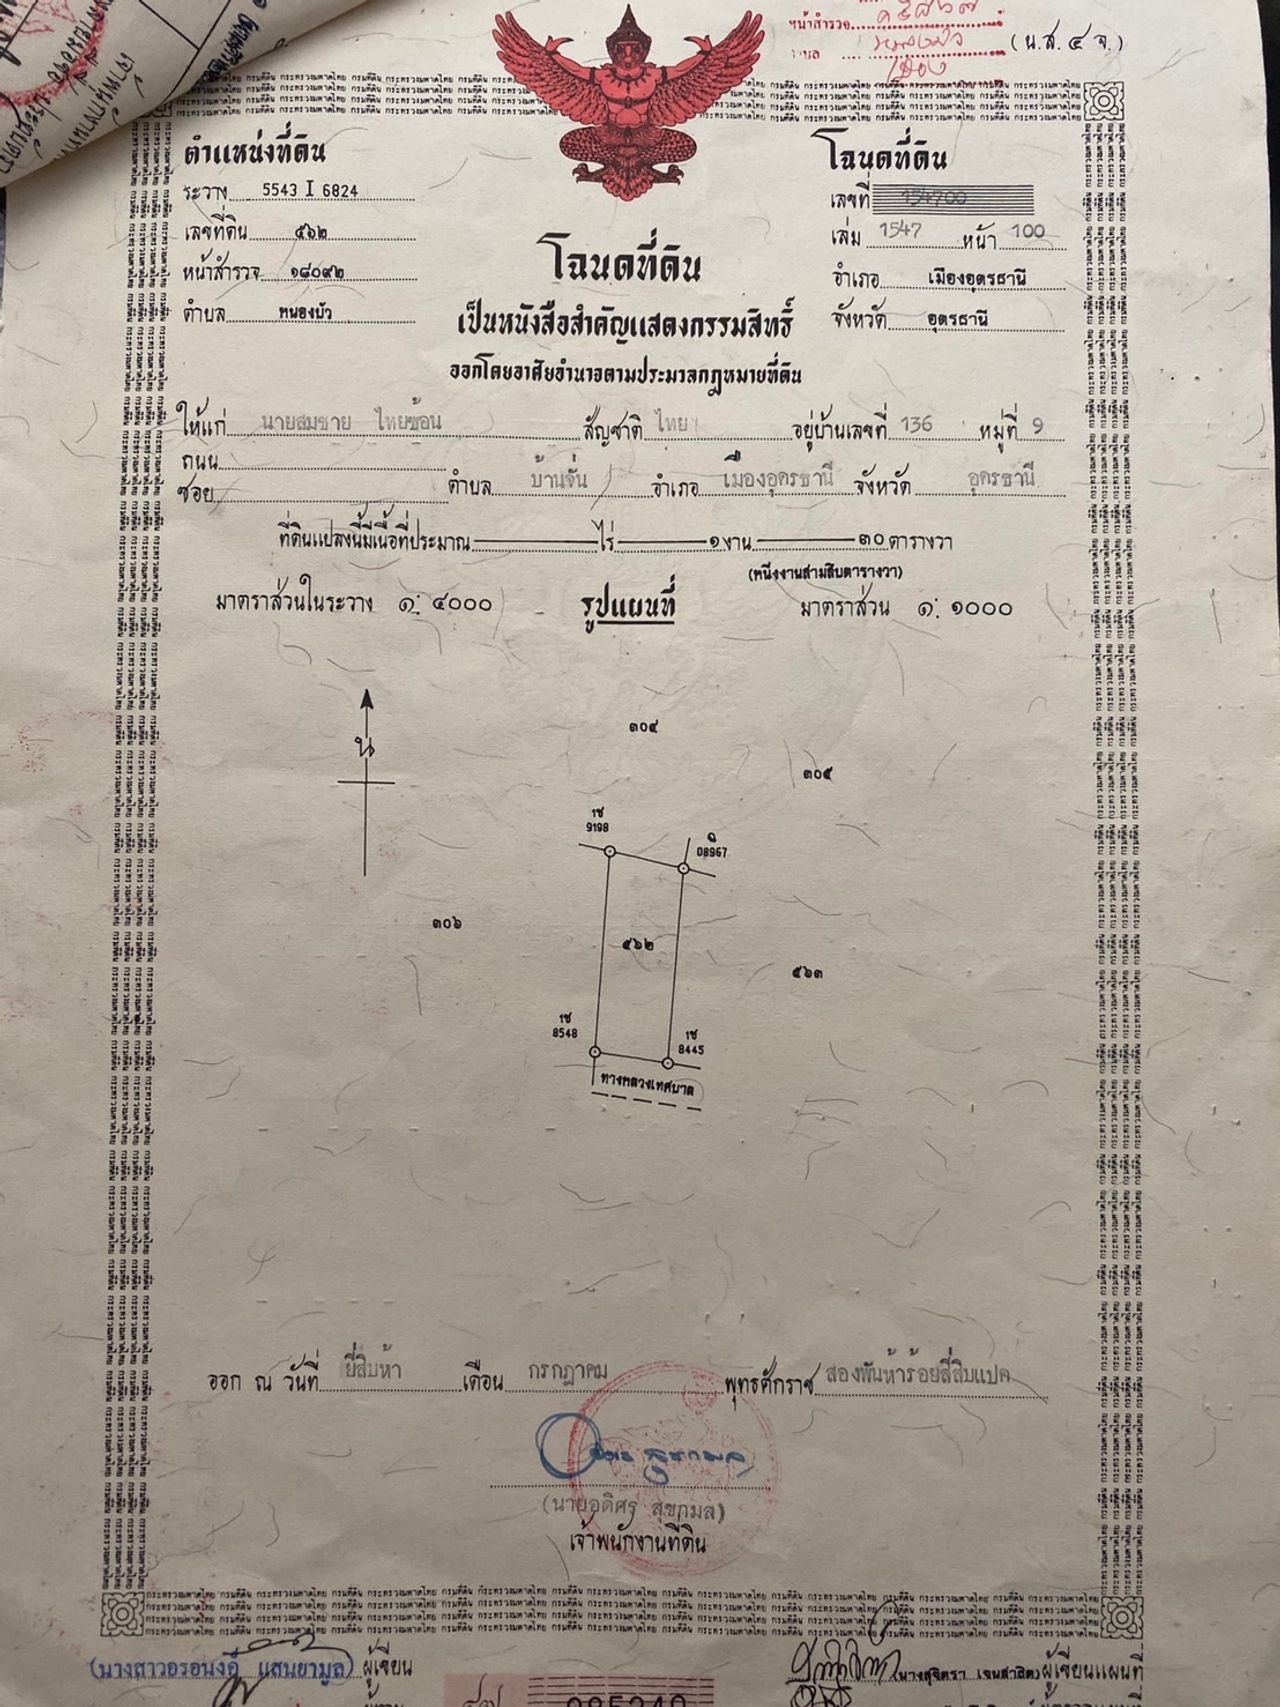 หน้าสำรวจ
(น.ส. ๔ จ.)
ตำแหน่งที่ดิน
ระวาง 5543 I 6824
เลขที่ดิน ๕๖๒
หน้าสำรวจ ๑๘๐๙๒
ตำบล หนองบัว
โฉนดที่ดิน
เลขที่ 154700
เล่ม 1547 หน้า 100
อำเภอ เมืองอุดรธานี
จังหวัด อุดรธานี
โฉนดที่ดิน
เป็นหนังสือสำคัญแสดงกรรมสิทธิ์
ออกโดยอาศัยอำนาจตามประมวลกฎหมายที่ดิน
ให้แก่ นายสมชาย ไทยซ้อน สัญชาติ ไทย อยู่บ้านเลขที่ 136 หมู่ที่ 9
ถนน
ซอย ตำบล บ้านจั่น อำเภอ เมืองอุดรธานี จังหวัด อุดรธานี
ที่ดินแปลงนี้มีเนื้อที่ประมาณ ไร่ ๑ งาน ๓๐ ตารางวา
(หนึ่งงานสามสิบตารางวา)
มาตราส่วนในระวาง ๑: ๔๐๐๐ รูปแผนที่ มาตราส่วน ๑: ๑๐๐๐
น
๓๐๔
๓๐๕
1ช
9198
08967
๓๐๖
๕๖๒
๕๖๓
1ช
8548
1ช
8445
ทางหลวงเทศบาล
ออก ณ วันที่ ยี่สิบห้า เดือน กรกฎาคม พุทธศักราช สองพันห้าร้อยสี่สิบแปด
(นายอดิศร สุขกมล)
เจ้าพนักงานที่ดิน
กรมที่ดิน กระทรวงมหาดไทย
(นางสาวอรอนงค์ แสนยามูล) ผู้เขียน
นางสุจิตรา ผู้เขียนแผนที่